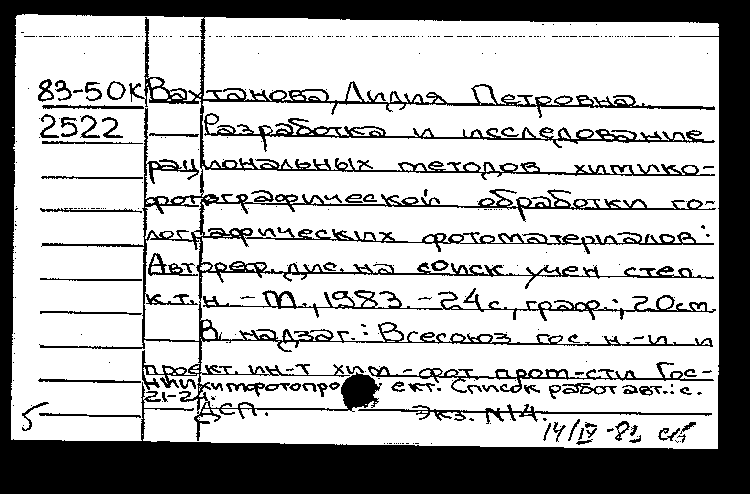 83-50К Вахтанова, Лидия Петровна.
2522 Разработка и исследование
рациональных методов химико-
фотографической обработки го-
лографических фотоматериалов:
Автореф. дис. на соиск. учен степ.
к.т.н. - М., 1983. - 24 с., граф.; 20 см.
В надзаг.: Всесоюз. гос. н.-и. и
проект. ин-т хим.-фот. пром-сти Гос-
НИИхимфотопроект. Список работ авт.: с.
21-24.
ДСП. Экз. №14.
5 14/IV-83